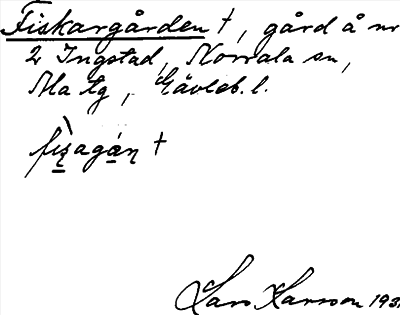 Fiskargården †, gård å nr
2 Ingstad, Norrala sn,
Ma tg, Gävleb. l.
Lars Larsson 193